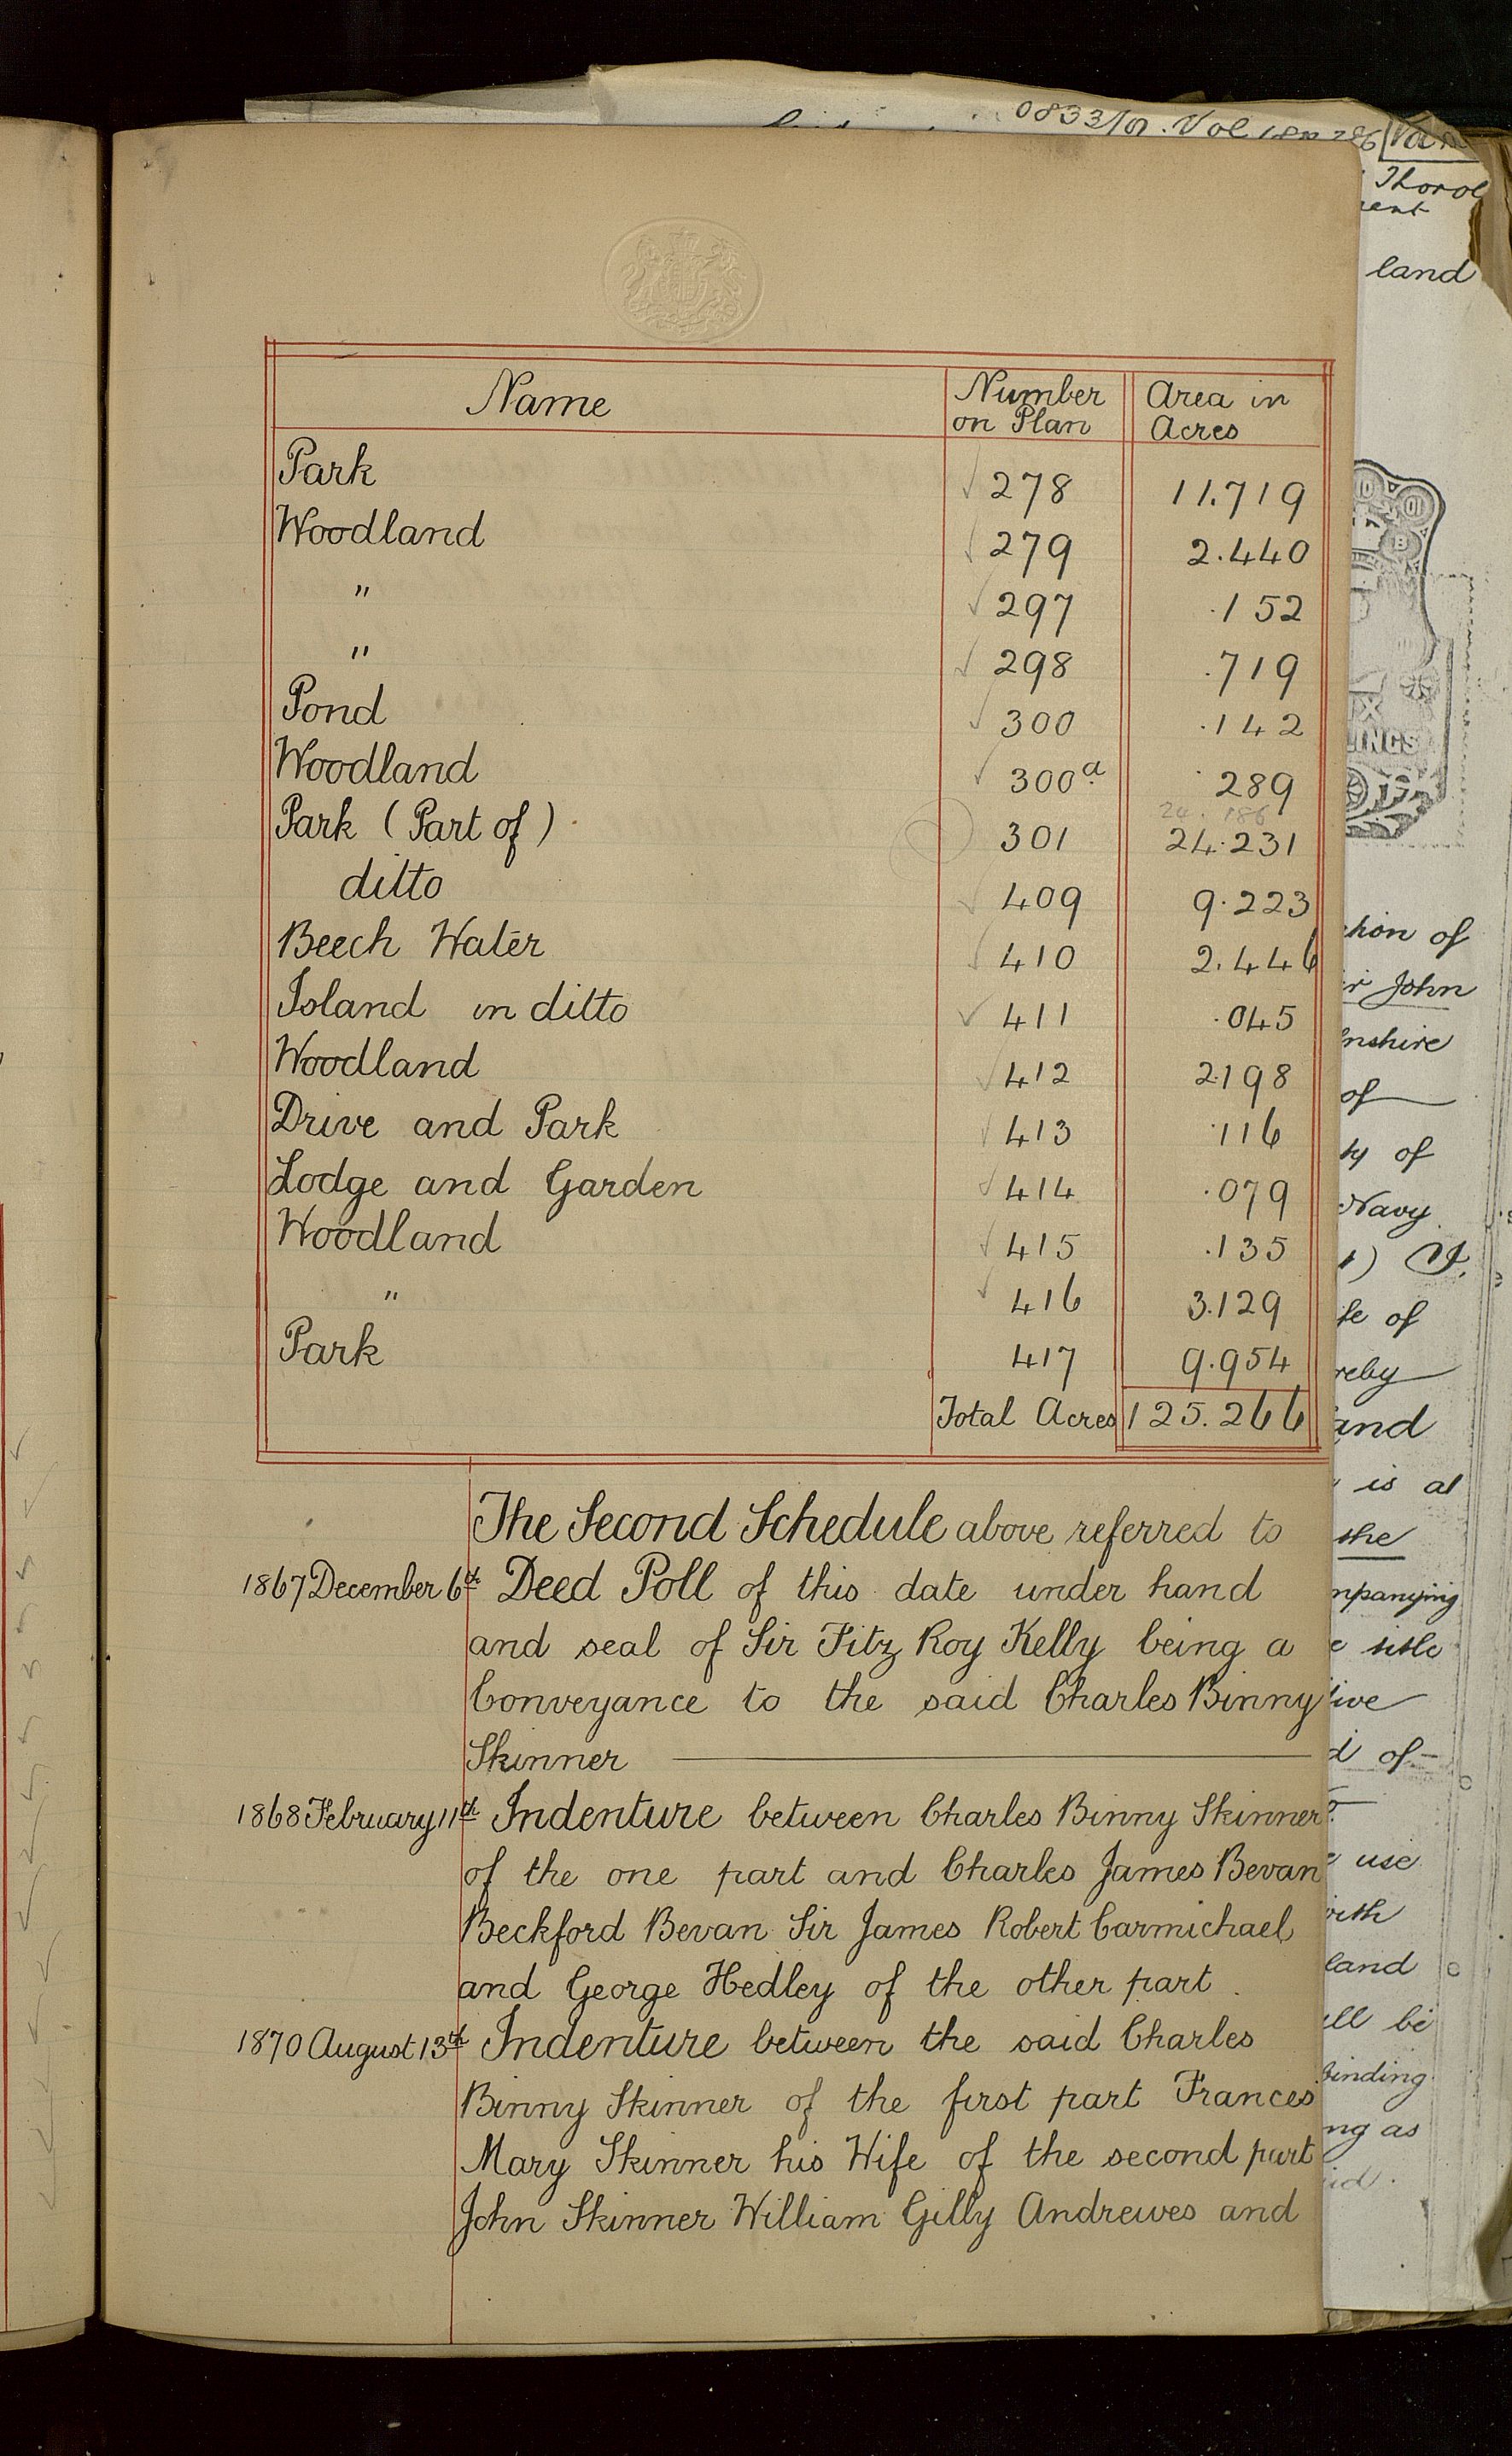 0833/19. Vol 18
Name Number on Plan Area in Acres
Park 278 11.719
Woodland 279 2.440
" 297 .152
" 298 .719
Pond 300 .142
Woodland 300a .289
24.186
Park (Part of) 301 24.231
ditto 409 9.223
Beech Water 410 2.446
Island in ditto 411 .045
Woodland 412 2.198
Drive and Park 413 .116
Lodge and Garden 414 .079
Woodland 415 .135
" 416 3.129
Park 417 9.954
Total Acres 125.266
The Second Schedule above referred to
1867 December 6th Deed Poll of this date under hand
and seal of Sir Fitz Roy Kelly being a
Conveyance to the said Charles Binny
Skinner
1868 February 11th Indenture between Charles Binny Skinner
of the one part and Charles James Bevan
Beckford Bevan Sir James Robert Carmichael
and George Hedley of the other part.
1870 August 13th Indenture between the said Charles
Binny Skinner of the first part Frances
Mary Skinner his Wife of the second part
John Skinner William Gilly Andrewes and
land
of
John
of
of
Navy
of
and
is at
the
of
use
land
be
as